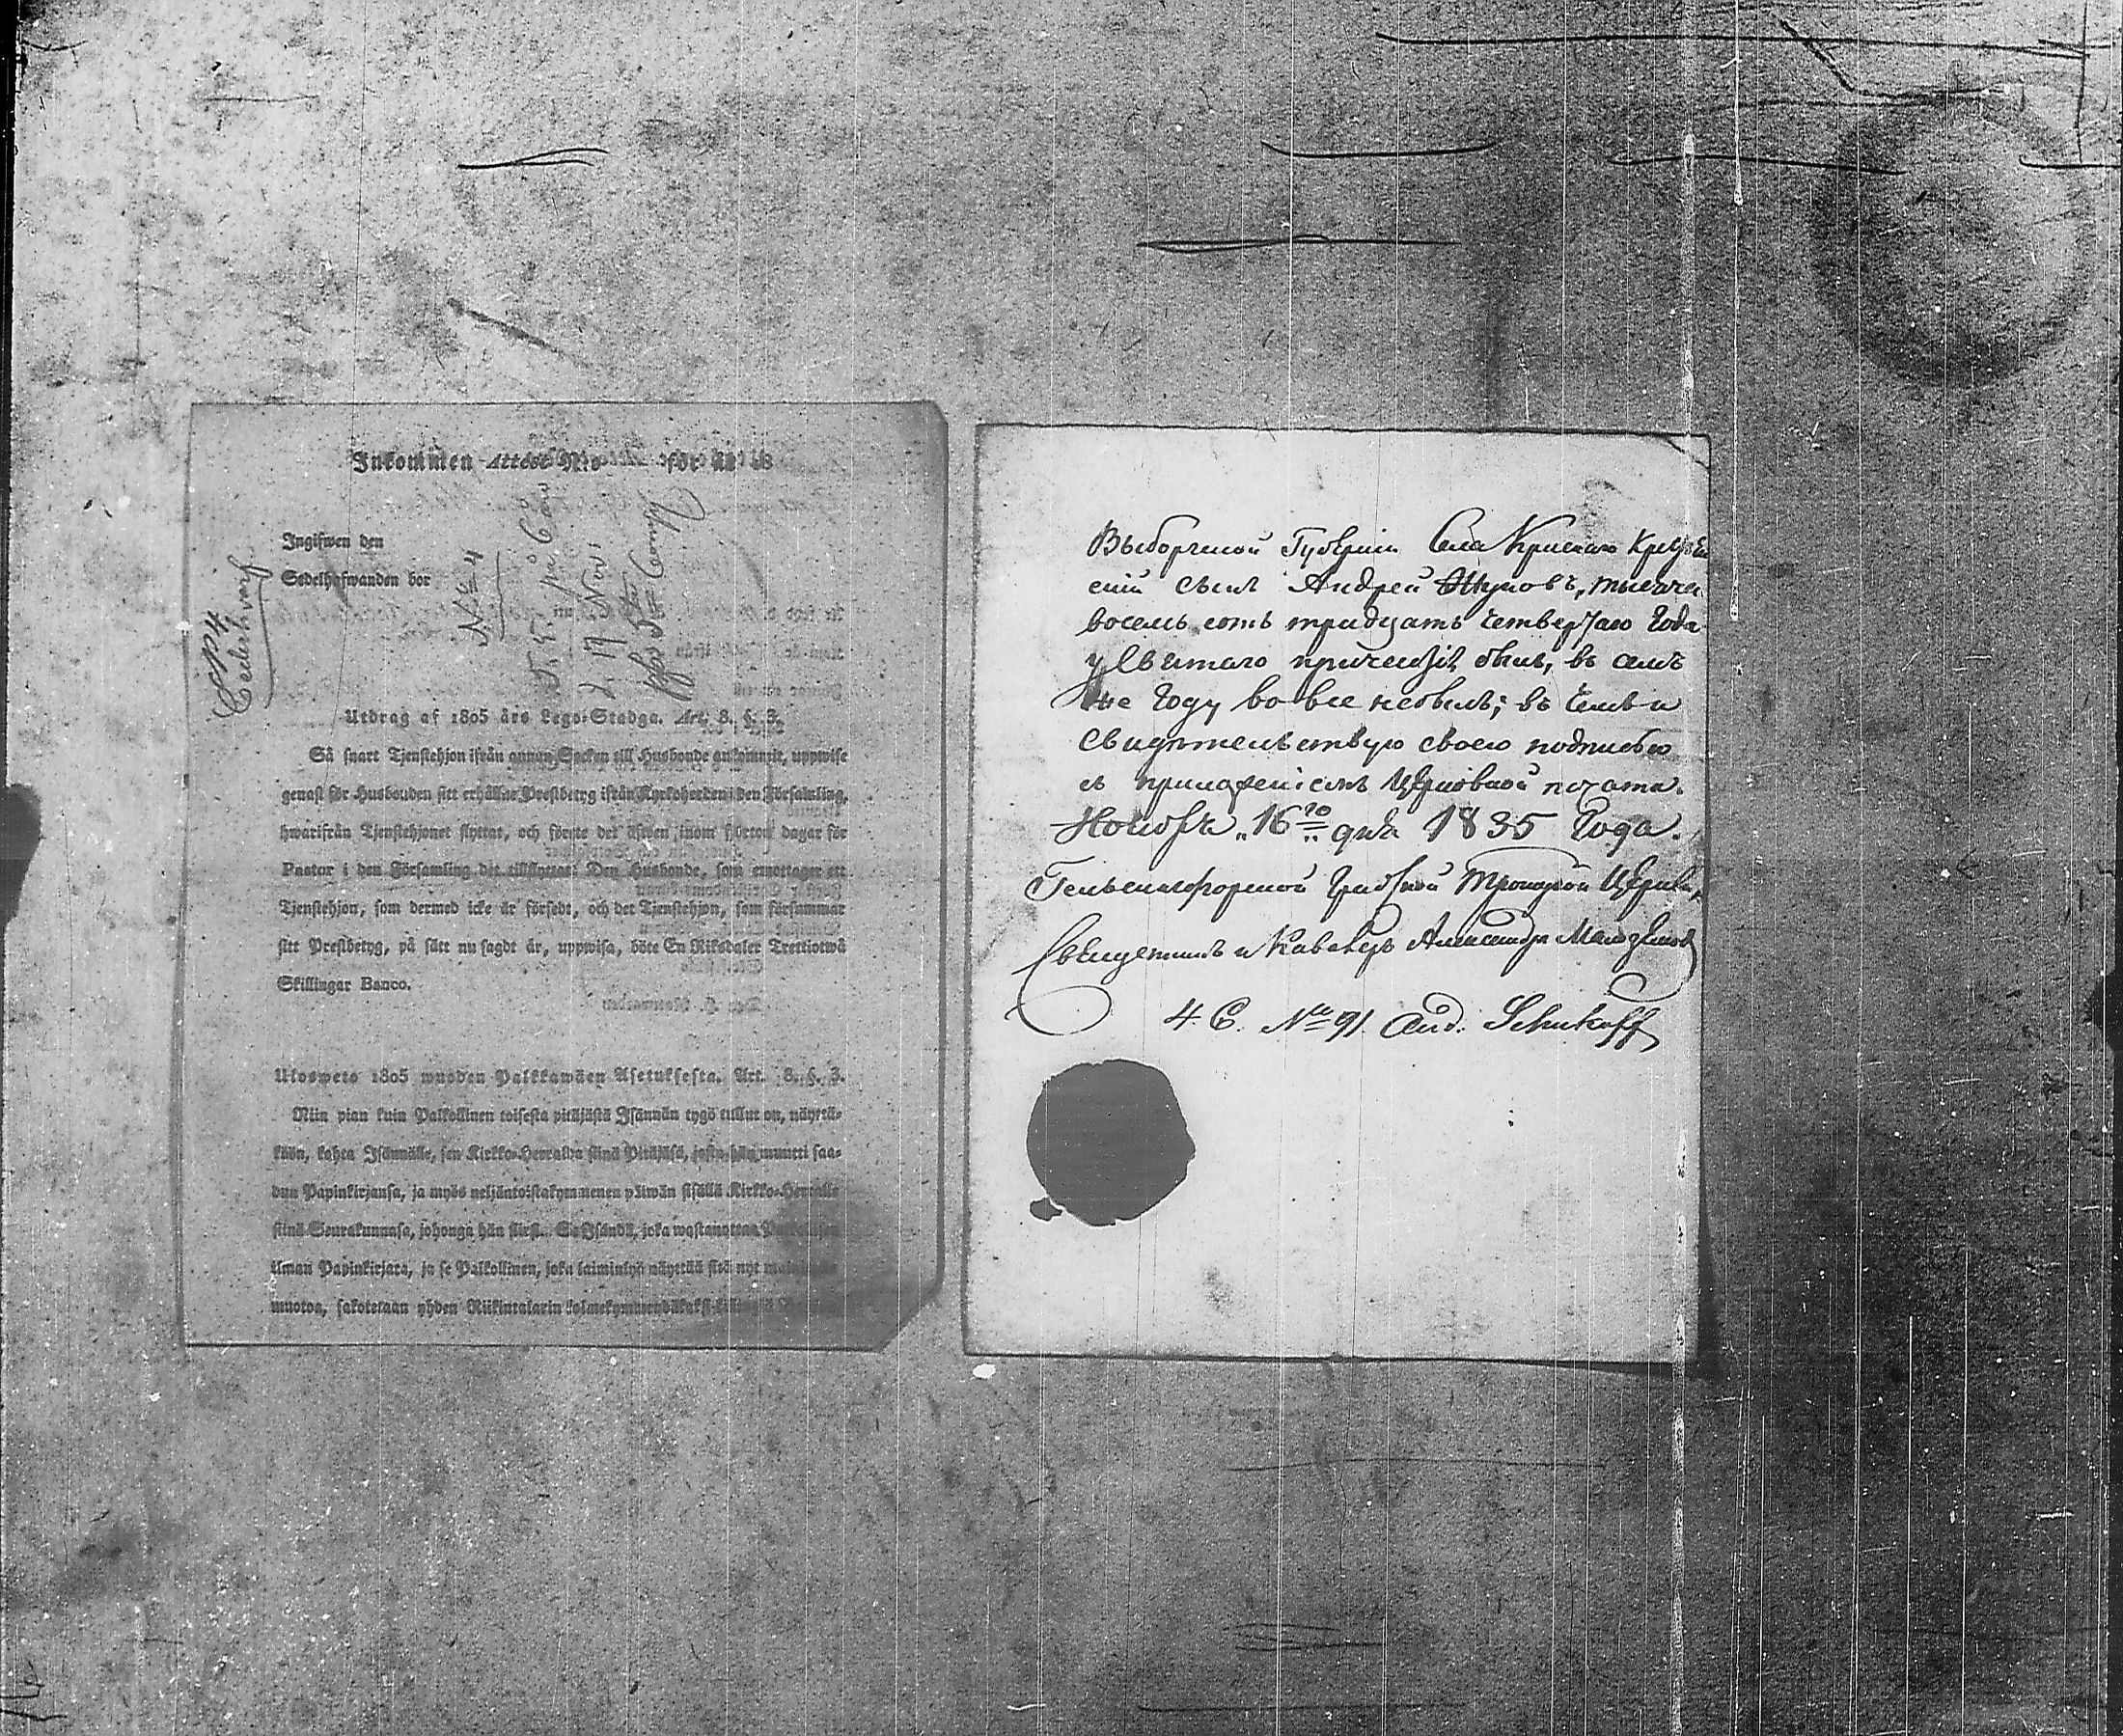 Inkommen Attest N:o för år 18
Ingifwen den
Sedelhafwanden bor
N:o 4
Cederhvarf
Utdrag af 1805 års Lego-Stadga. Art. 8. §. 3.
Så snart Tjenstehjon ifrån annan Socken till Husbonde ankommit, uppwise
genast för Husbonden sitt erhållne Prestbetyg ifrån Kyrkoherden i den Församling,
hwarifrån Tjenstehjonet flyttat, och förete det äfwen inom fjorton dagar för
Pastor i den Församling det tillflyttat: Den Husbonde, som emottager ett
Tjenstehjon, som dermed icke är försedt, och det Tjenstehjon, som försummar
sitt Prestbetyg, på sätt nu sagdt är, uppwisa, böte En Riksdaler Trettiotwå
Skillingar Banco.
Uloswето 1805 wuoden Palkkawäen Asetuksesta. Art. 8. §. 3.
Niin pian kuin Palkollinen toisesta pitäjästä Isännän tygö tullut on, näyttä-
köön, kohta Isännälle, sen Kirkko-Herralda siinä Pitäjäsä, josta hän muutti saa-
dun Papinkirjansa, ja myös neljäntoistakymmenen päiwän sisällä Kirkko-Herralle
siinä Seurakunnasa, johonga hän siirsi. Se Isändä, joka wastanottaa
ilman Papinkirjata, ja se Palkollinen, joka laiminlyö näyttää sitä nyt
muotoa, sakotetaan yhden Riikintalarin kolmekymmendäkaksi
Выборгской Губерніи Села Краснаго
сынъ Андрей Жуковъ, тысяча
восемь сотъ тридцать четвертаго Года
у Святаго причастія былъ, въ семъ
же Году во все небылъ; въ чемъ и
Свидѣтельствую своею подписью
съ приложеніемъ Церковной печати.
Ноября „16го„ дня 1835 Года.
Гельсингфорской Троицкой Церкви,
Священникъ и Кавалеръ Александръ
4. C. N:o 91. And. Schukoff